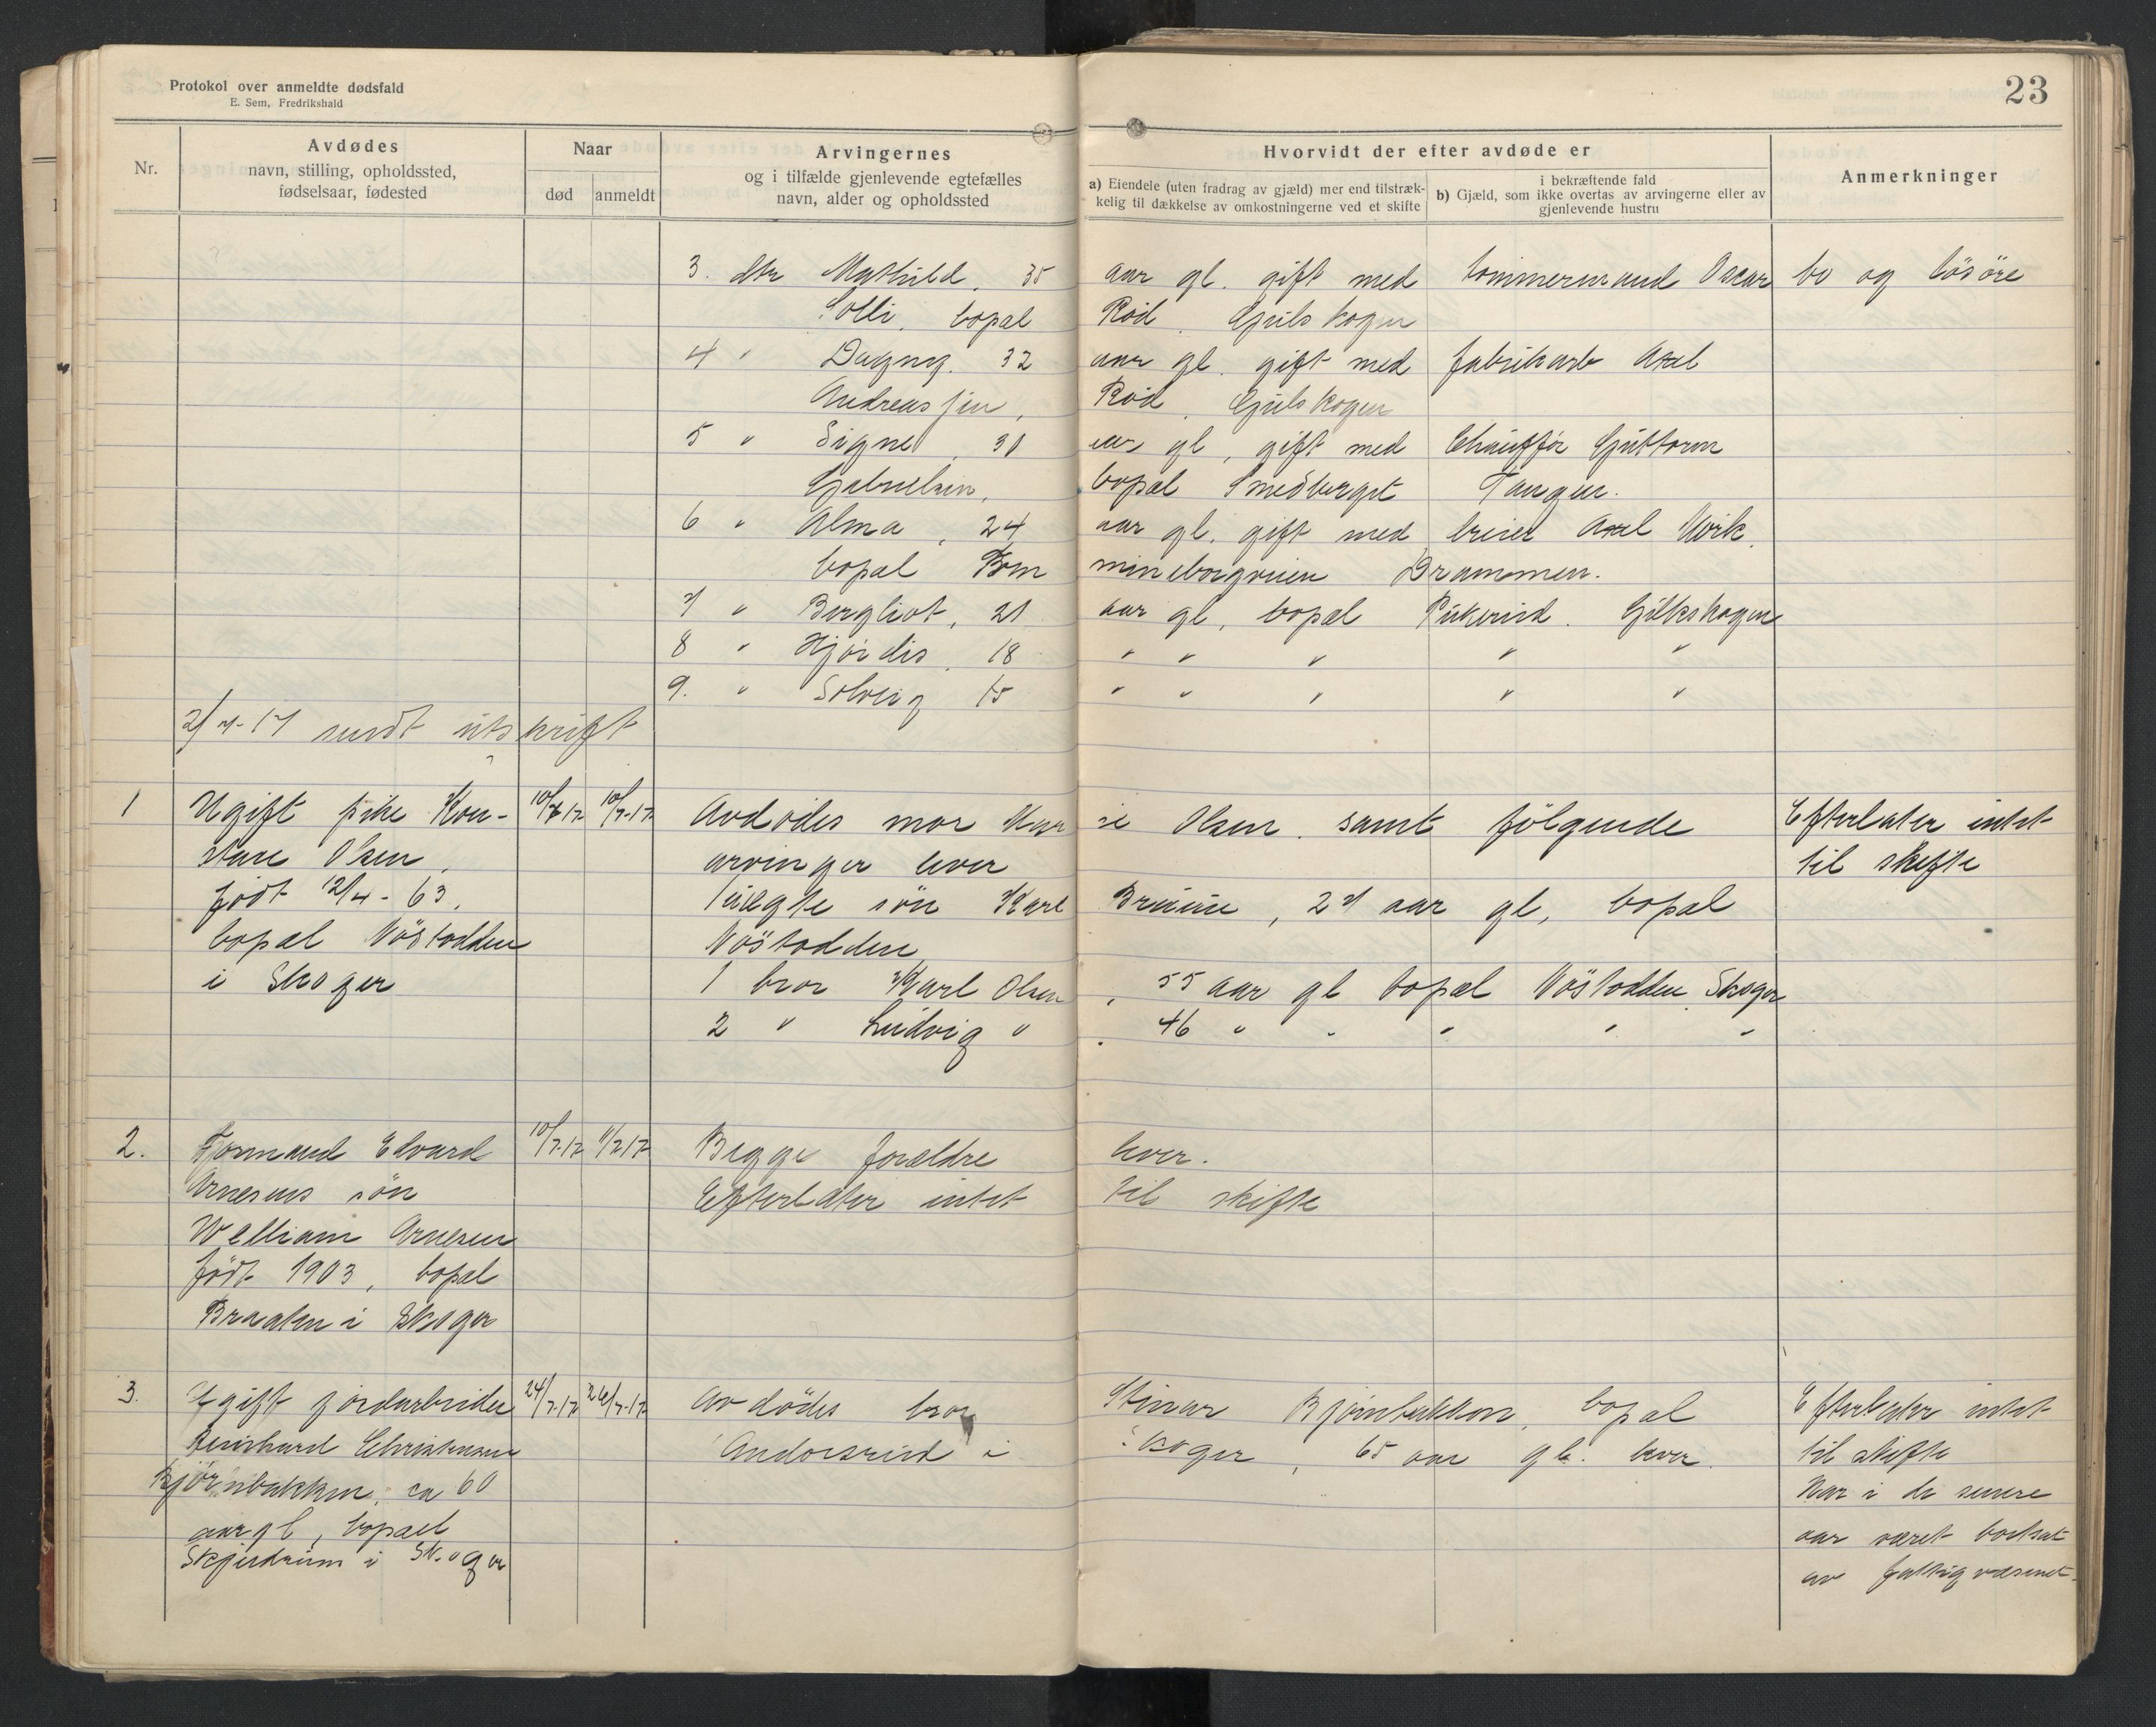 Protokol over anmeldte dødsfald
E. Sem, Fredrikshald
23
Nr.
Avdødes
navn, stilling, opholdssted,
fødselsaar, fødested
Naar
død
anmeldt
Arvingernes
og i tilfælde gjenlevende egtefælles
navn, alder og opholdssted
Hvorvidt der efter avdøde er
a) Eiendele (uten fradrag av gjæld) mer end tilstræk-
kelig til dækkelse av omkostningerne ved et skifte
i bekræftende fald
b) Gjæld, som ikke overtas av arvingerne eller av
gjenlevende hustru
Anmerkninger
3. dtr Mathild, 35 aar gl. gift med tømmermand Oscar bo og løsøre
Solli, bopal Rød, Gulskogen
4 " Dagny, 32 aar gl. gift med fabrikarb Axel
Andreassen, Rød, Gulskogen
5 " Signe, 30 aar gl, gift med Chauffør Guttorm
Gabrielsen, bopal Smedberget Tangen.
6 " Alma, 24 aar gl. gift med Axel
bopal Drammen.
7 " Bergliot, 21 aar gl, bopal Pukerud. Gulskogen
8 " Hjørdis, 18 " " " " "
9. " Solveig 15 " " " " "
2/7-17 sendt utskrift
1 Ugift pike Kon- 10/7 17 10/7-17 Avdødes mor Karen Olsen. samt følgende Efterlater intet
stanse Olsen, arvinger lever til skifte
født 12/4-63, uægte søn Karl Bruun, 27 aar gl, bopal
bopal Nøstodden Nøstodden
i Skoger 1 bror Karl Olsen, 55 aar gl bopal Nøstodden, Skoger
2 " Ludvig " , 46 " " " " "
2. Formand Edvard 10/7-17 11/7 17 Begge forældre lever.
Arnesens søn Efterlater intet til skifte
William Arnesen
født 1903, bopal
Braaten i Skoger
3. Ugift jordarbeider 24/7-17 26/7-17 Avdødes bror Steinar Bjørnbakken, bopal Efterlater intet
Reinhard Christensen Andorsrud i Skoger, 65 aar gl. lever. til skifte
Bjørnbakken, ca 60 Har i de senere
aar gl, bopael aar været bortsat
Skjerdrum i Skoger av fattigvæsenet.